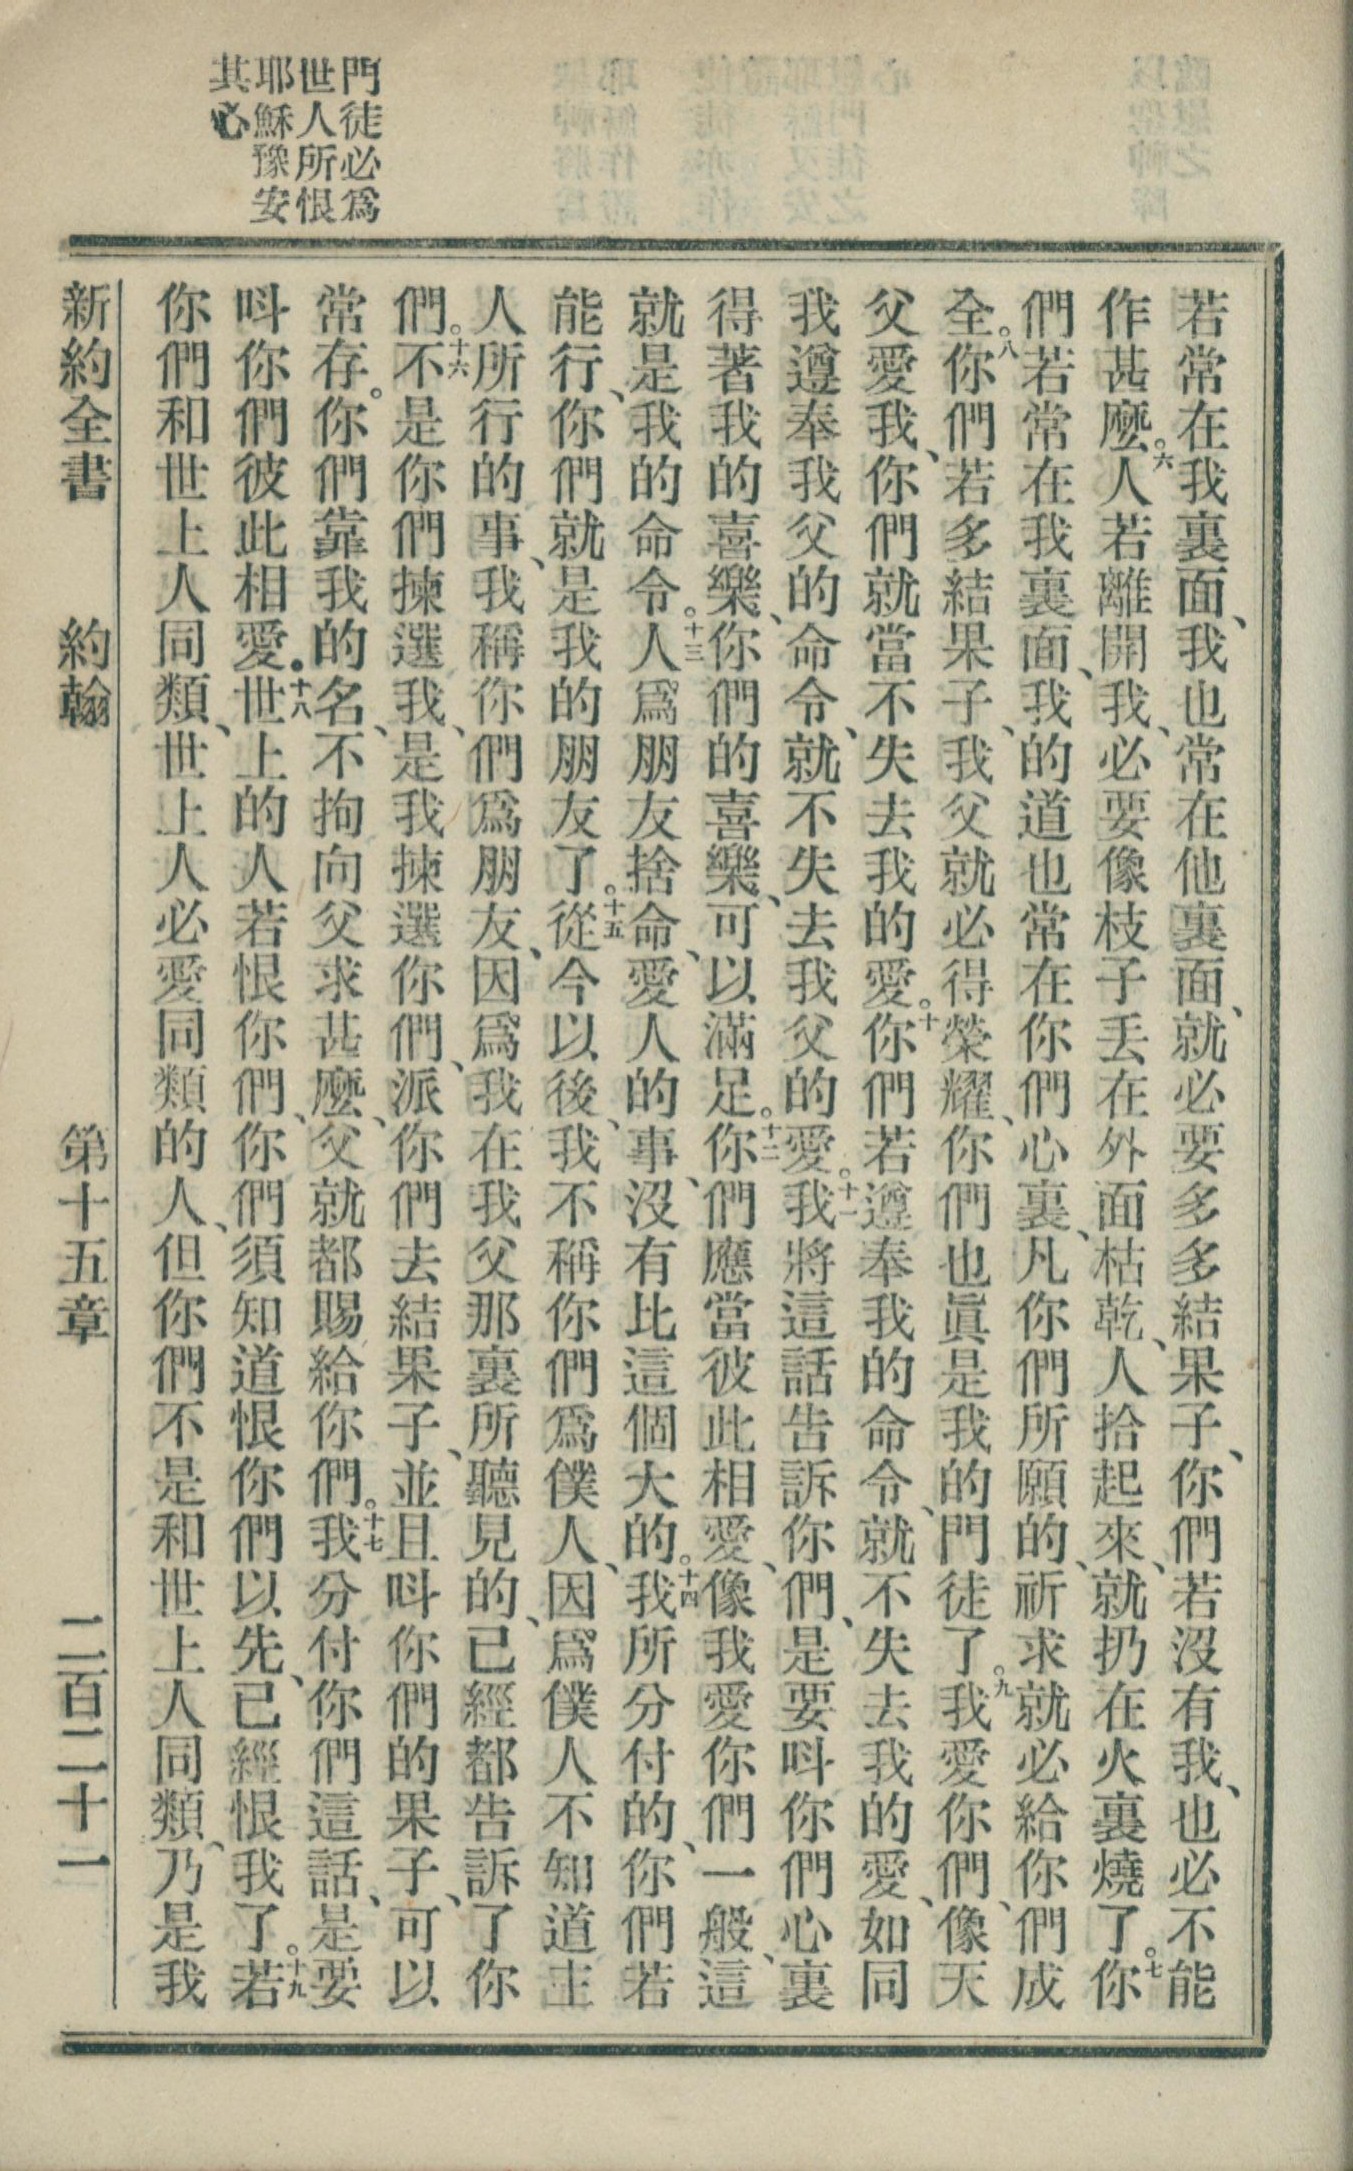 門徒必爲
世人所恨
耶穌豫安
其心
若常在我裏面、我也常在他裏面、就必要多多結果子、你們若沒有我、也必不能
作甚麼。六人若離開我、必要像枝子丟在外面枯乾、人拾起來、就扔在火裏燒了。七你
們若常在我裏面、我的道也常在你們心裏、凡你們所願的、祈求就必給你們成
全。八你們若多結果子、我父就必得榮耀、你們也眞是我的門徒了。九我愛你們、像天
父愛我、你們就當不失去我的愛。十你們若遵奉我的命令、就不失去我的愛、如同
我遵奉我父的命令、就不失去我父的愛。十一我將這話告訴你們、是要呌你們心裏
得著我的喜樂、你們的喜樂、可以滿足。十二你們應當彼此相愛、像我愛你們一般、這
就是我的命令。十三人爲朋友捨命、愛人的事、沒有比這個大的。十四我所分付的、你們若
能行、你們就是我的朋友了。十五從今以後、我不稱你們爲僕人、因爲僕人不知道主
人所行的事、我稱你們爲朋友、因爲我在我父那裏所聽見的、已經都告訴了你
們。十六不是你們揀選我、是我揀選你們、派你們去結果子、並且呌你們的果子、可以
常存。你們靠我的名、不拘向父求甚麼、父就都賜給你們。十七我分付你們這話、是要
呌你們彼此相愛。十八世上的人若恨你們、你們須知道恨你們以先、已經恨我了。十九若
你們和世上人同類、世上人必愛同類的人、但你們不是和世上人同類、乃是我
新約全書 約翰 第十五章 二百二十一